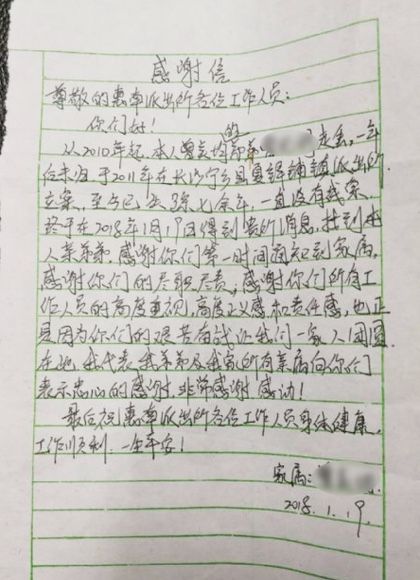 感谢信
尊敬的惠南派出所各位工作人员:
你们好!
从2010年起,本人曾 的 走丢,一年
后未归于2011年在长沙宁乡县夏铎铺镇派出所
立案,至今已 七余年,一直没有线索,
终于在2018年1月19日得到 的消息,找到本
人弟弟,感谢你们第一时间 到家属,
感谢你们的尽职尽责,感谢你们所有工
作人员的高度重视,高度正义感和责任感,也正
是因为你们的艰苦奋战让我们一家人团圆
在 ,我代表我弟弟及我家所有亲属向你们
表示忠心的感谢,非常感谢,感动!
最后祝惠南派出所各位工作人员身体健康,
工作顺利,一生平安!
家属:
2018.1.19.